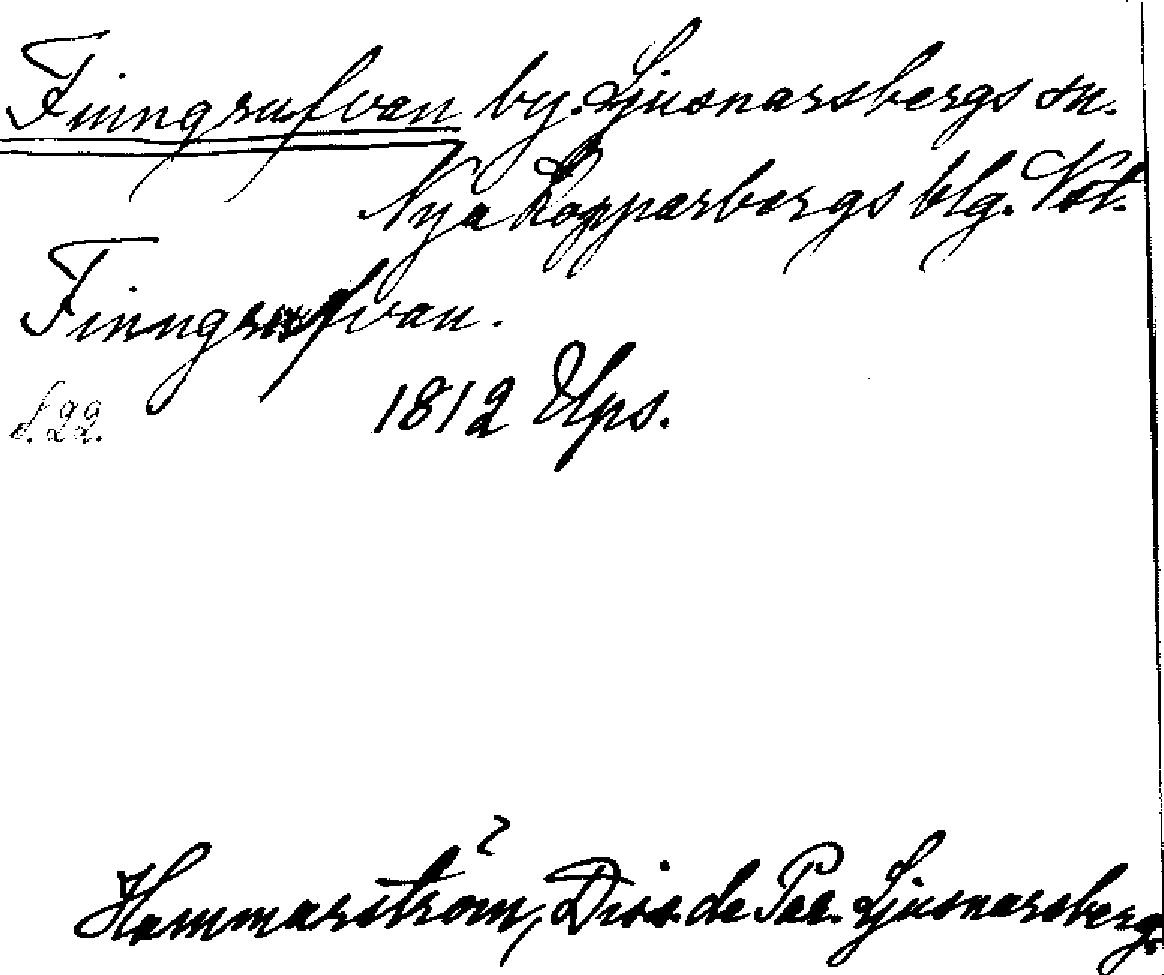 Finngrufvan by. Ljusnarsbergs sn.
Nya Kopparbergs blg. Vstm.
Finngrufvan.
s. 22. 1812 Ups.
Hammarström, Diss. de Par. Ljusnarsberg.